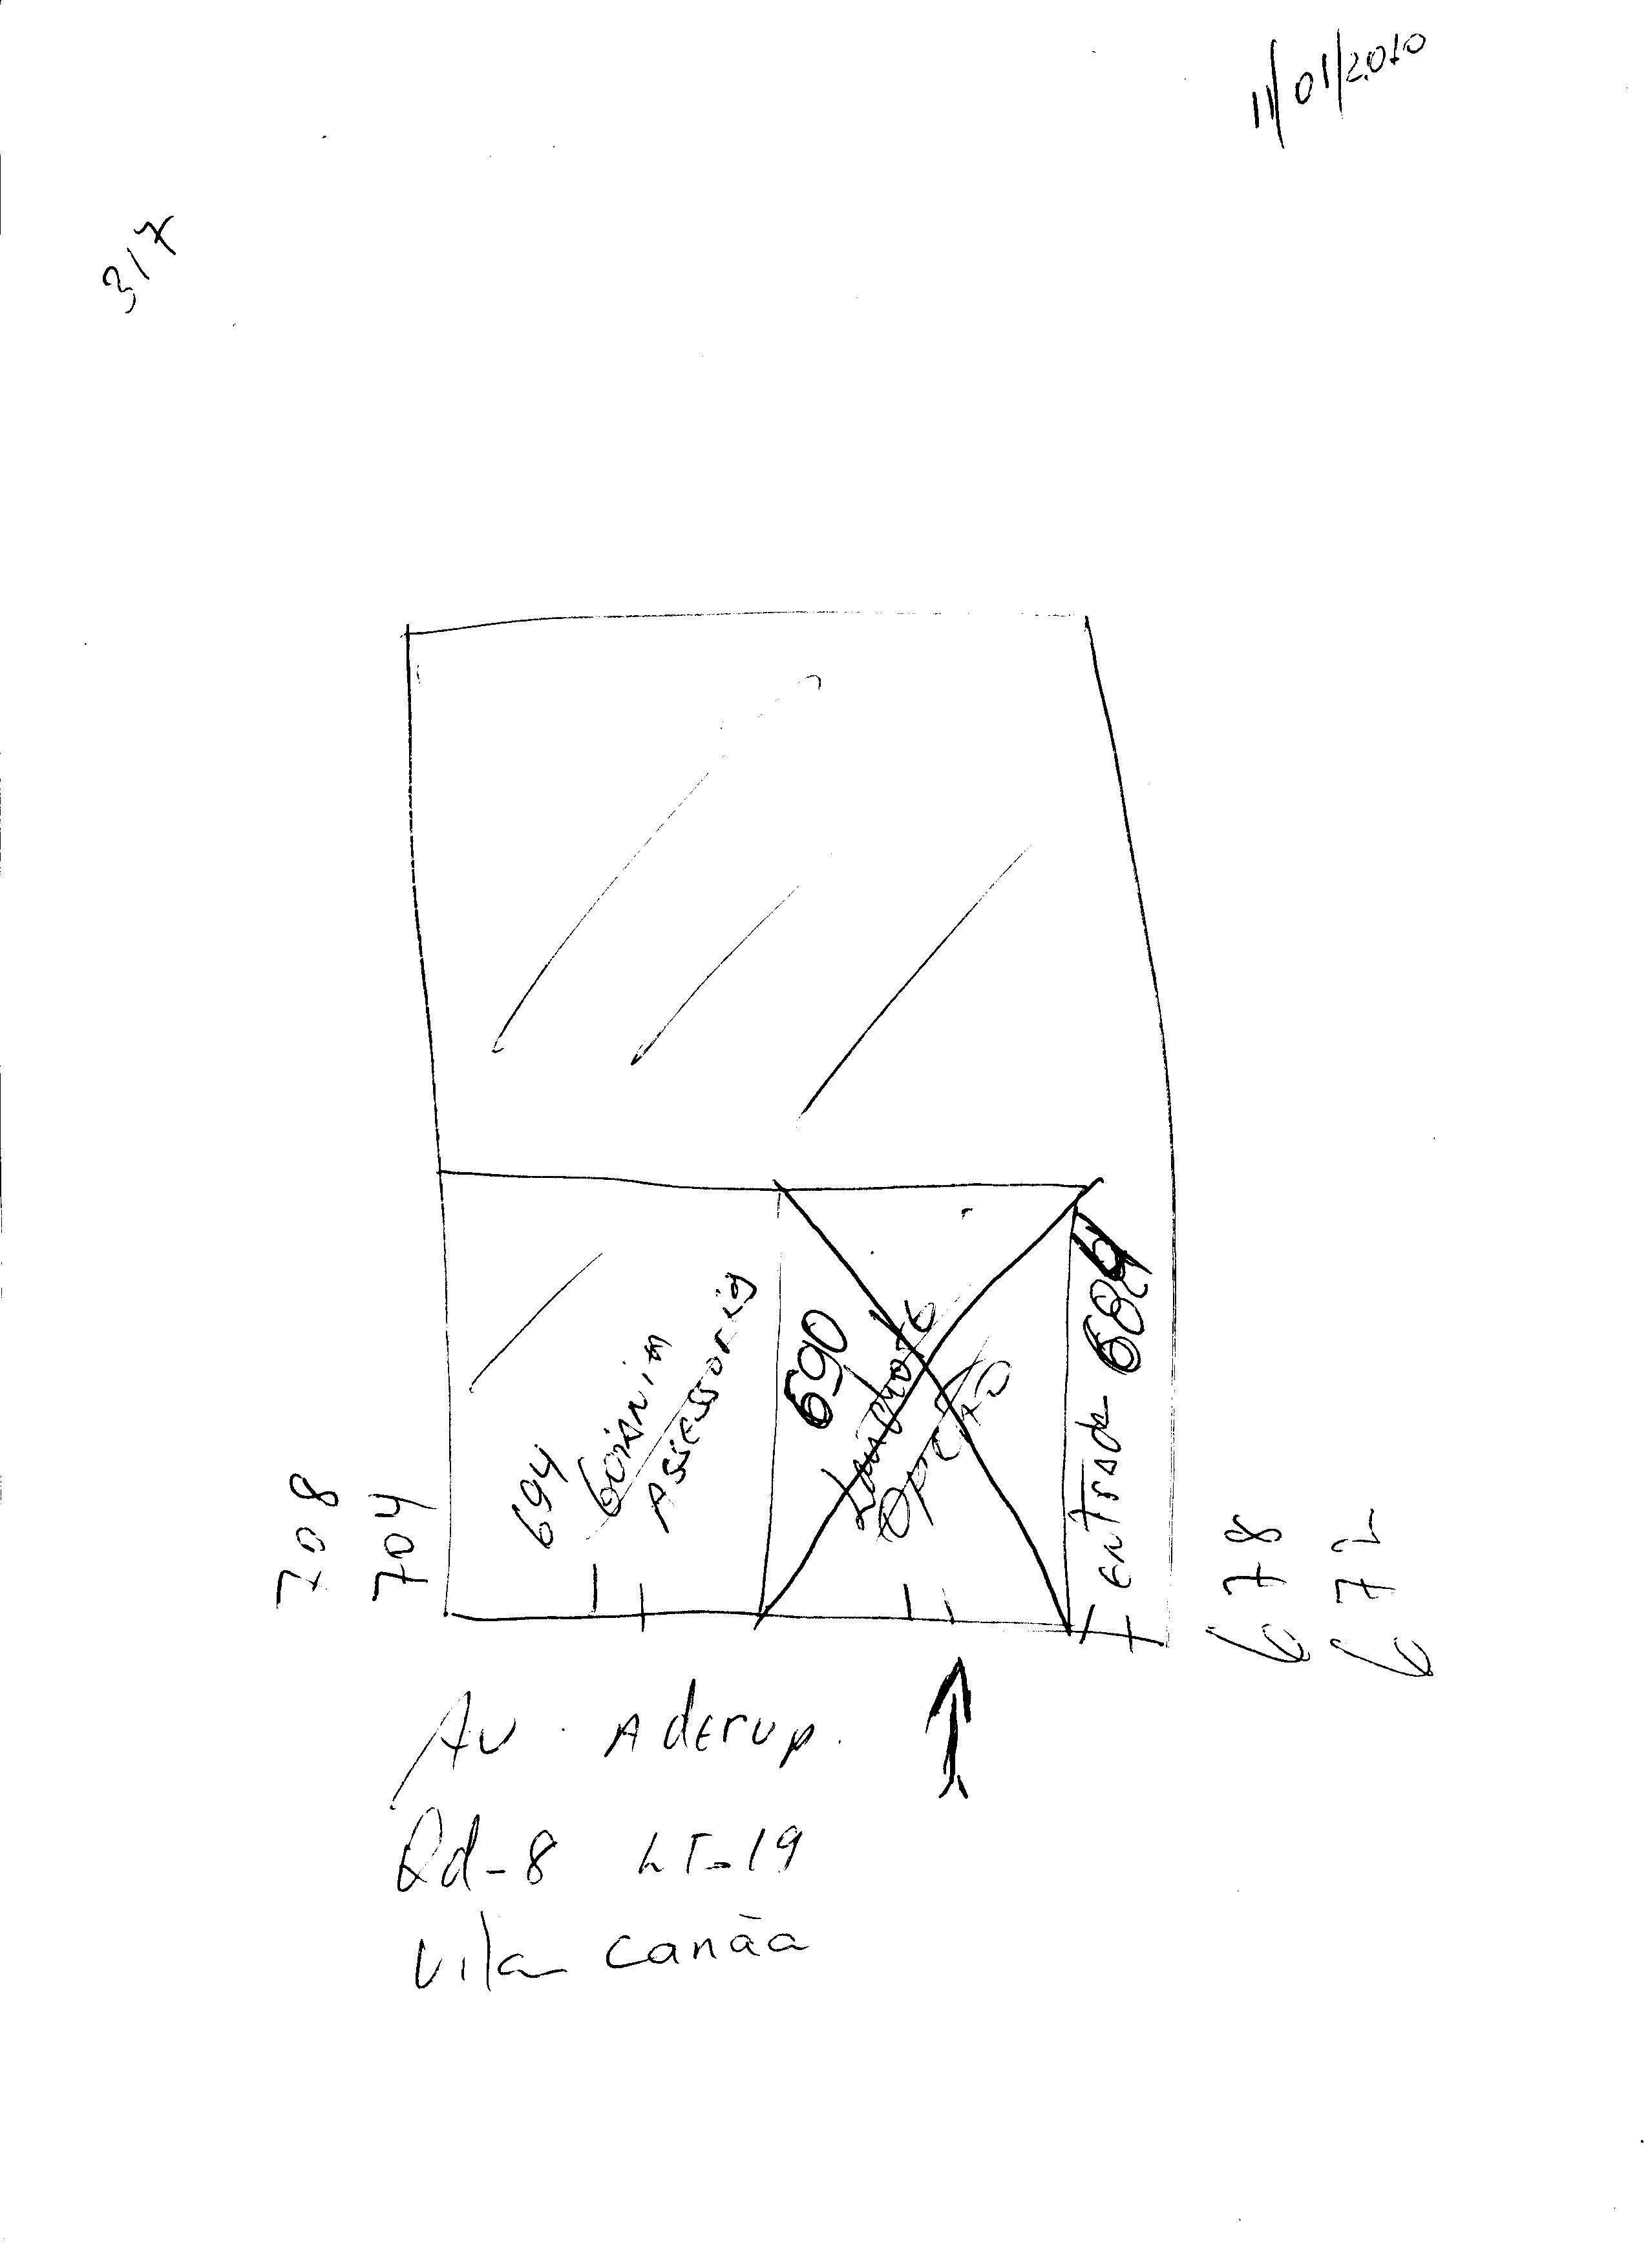 11/01/2010
317
694
Goiania
Assessoria
690
Lanchote
Opção
Entrada 684
708
704
678
672
Av. Aderup.
Qd-8 LT-19
Vila Canãa